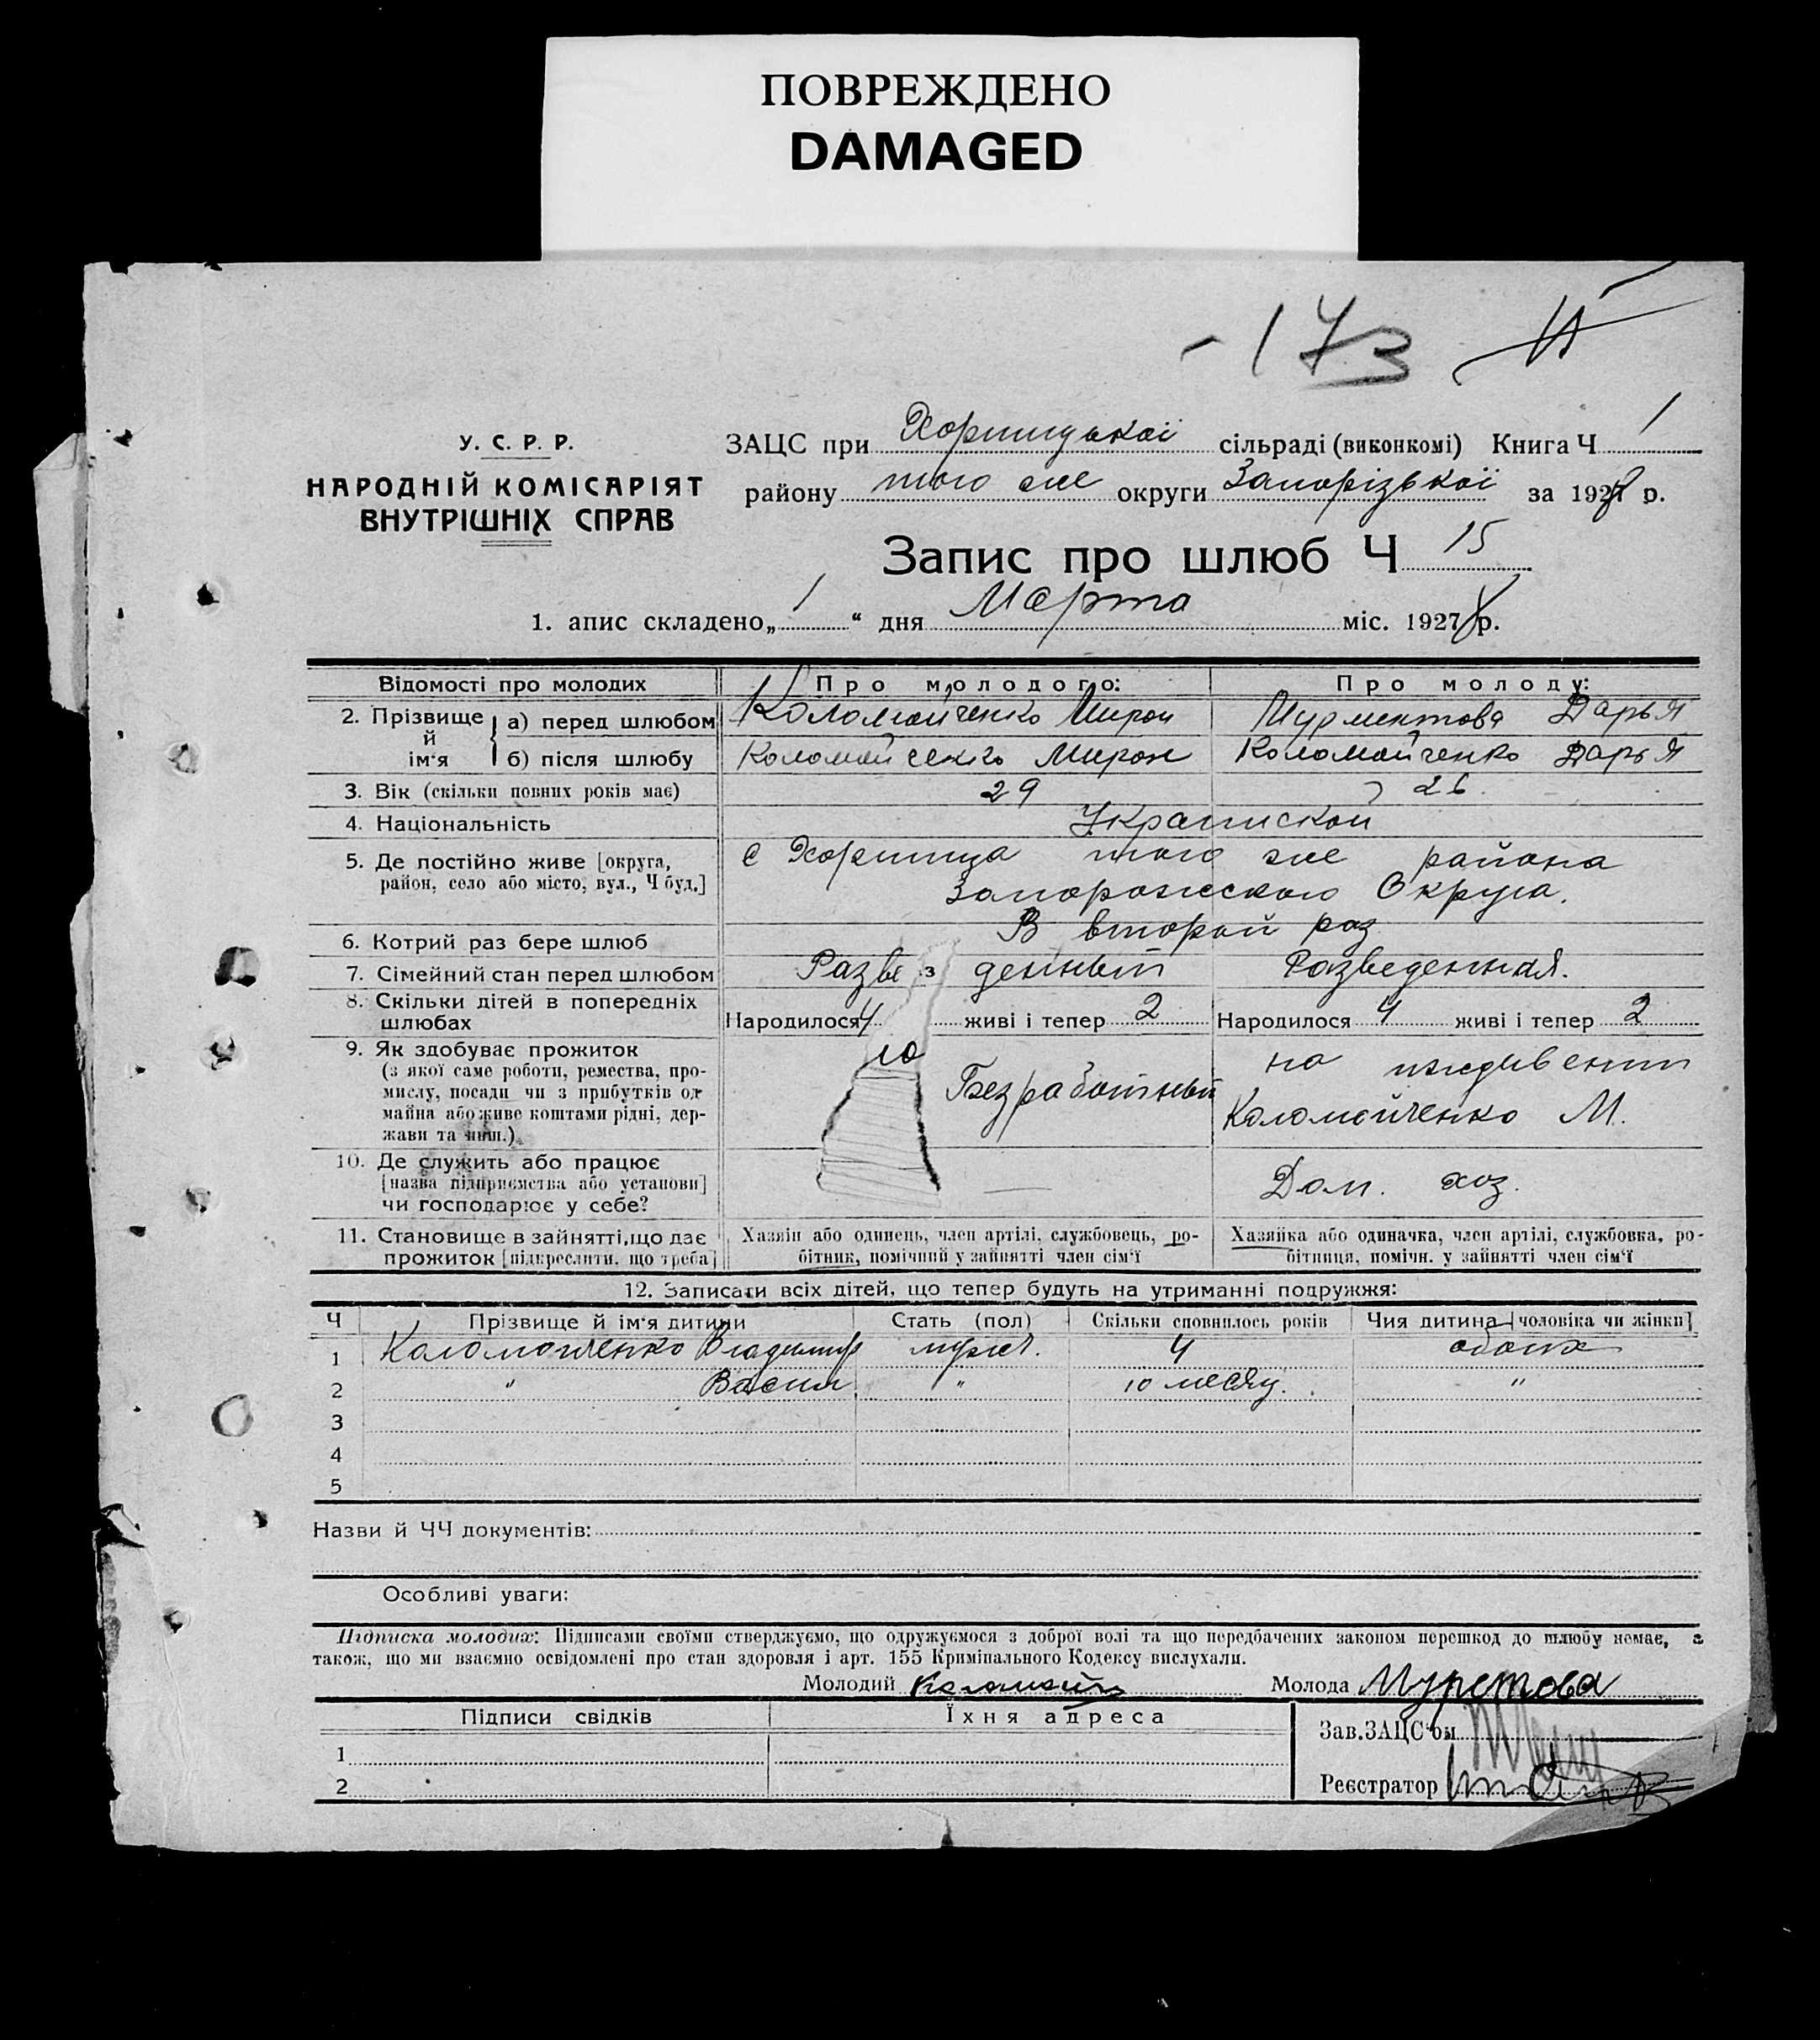 ПОВРЕЖДЕНО
DAMAGED
-173
У. С. Р. Р.
НАРОДНІЙ КОМІСАРІЯТ
ВНУТРІШНІХ СПРАВ
ЗАЦС при Хортицької сільраді (виконкомі) Книга Ч 1
району того же округи Запорізької за 1928 р.
Запис про шлюб Ч 15
1. апис складено „ 1 “ дня Марта міс. 1928 р.
Відомості про молодих Про молодого: Про молоду:
2. Прізвище й ім'я а) перед шлюбом Коломойченко Мирон Дарья
б) після шлюбу Коломойченко Мирон Коломойченко Дарья
3. Вік (скільки повних років має) 29 26
4. Національність Украинской
5. Де постійно живе [округа, район, село або місто, вул., Ч буд.] с Хортица того же района
Запорожского Округа.
6. Котрий раз бере шлюб В второй раз
7. Сімейний стан перед шлюбом Разведенный Разведенная.
8. Скільки дітей в попередніх шлюбах Народилося 4 живі і тепер 2 Народилося 4 живі і тепер 2
9. Як здобуває прожиток
(з якої саме роботи, ремества, про-
мислу, посади чи з прибутків од
майна або живе коштами рідні, дер-
жави та инш.)
Безработный
на иждивении
Коломойченко М.
10. Де служить або працює
[назва підприємства або установи]
чи господарює у себе?
— Дом. хоз.
11. Становище в зайнятті, що дає
прожиток [підкреслити, що треба]
Хазяїн або одинець, член артілі, службовець, ро-
бітник, помічний у зайнятті член сім'ї
Хазяйка або одиначка, член артілі, службовка, ро-
бітниця, помічн. у зайнятті член сім'ї
12. Записати всіх дітей, що тепер будуть на утриманні подружжя:
Ч Прізвище й ім'я дитини Стать (пол) Скільки сповнилось років Чия дитина [чоловіка чи жінки]
1 Коломойченко Владимир мужск. 4 обоих
2 " Васил " 10 месяц. "
3
4
5
Назви й ЧЧ документів:
Особливі уваги:
Підписка молодих: Підписами своїми стверджуємо, що одружуємося з доброї волі та що передбачених законом перешкод до шлюбу немає, а
також, що ми взаємно освідомлені про стан здоровля і арт. 155 Кримінального Кодексу вислухали.
Молодий Молода
Підписи свідків Їхня адреса
Зав. ЗАЦС'ом
1
2
Реєстратор